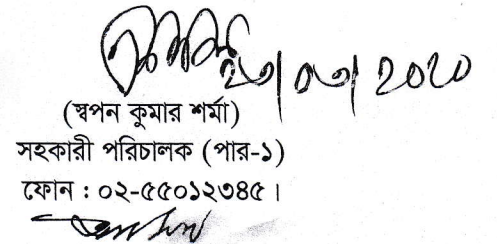 (স্বপন কুমার শর্মা)
সহকারী পরিচালক (পার-১)
ফোন : ০২-৫৫০১২৩৪৫ ।